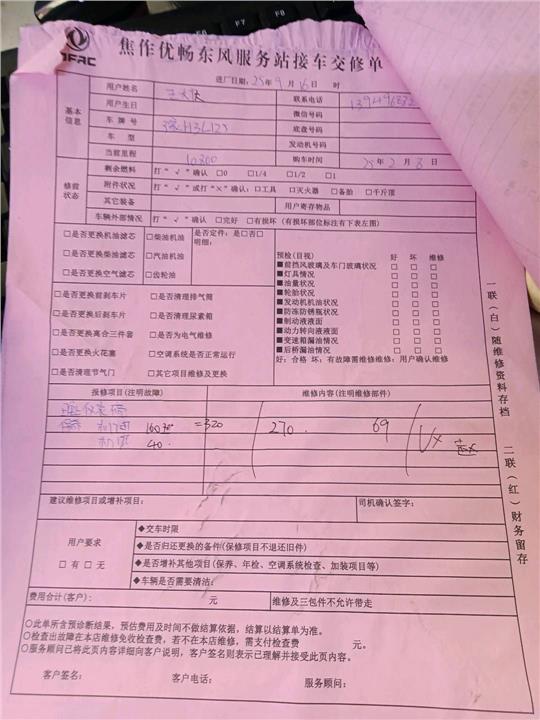 F6 F7 F8
DFAC
焦作优畅东风服务站接车交修单
进厂日期：25年9月16日 时
基本信息
用户姓名 联系电话
用户生日 微信号码
车牌号 底盘号码
车型 发动机号码
当前里程 10800 购车时间 25 2 8
修前状态
剩余燃料 打“√”确认 □0 □1/4 □1/2 □1
附件状况 打“√”或打“×”确认：□工具 □灭火器 □备胎 □千斤顶
其它装备 用户寄存物品
车辆外部情况 打“√”确认 □完好 □有损坏（有损坏部位标注有下表左图）
□是否更换机油滤芯 □柴油机油
□是否更换柴油滤芯 □汽油机油
□是否更换空气滤芯 □齿轮油
是否定件：是□否□
明细：
□是否更换前刹车片 □是否清理排气筒
□是否更换后刹车片 □是否清理尿素箱
□是否更换离合三件套 □是否为电气维修
□是否更换火花塞 □空调系统是否正常运行
□是否清理节气门 □其它项目维修及更换
预检(目视) 好 坏 维修
■前挡风玻璃及车门玻璃状况 □ □ □
■灯具情况 □ □ □
■油量状况 □ □ □
■轮胎状况 □ □ □
■发动机机油状况 □ □ □
■防冻防锈瓶状况 □ □ □
■制动液液面 □ □ □
■动力转向液液面 □ □ □
■变速箱漏油情况 □ □ □
■后桥漏油情况 □ □ □
好：合格 坏：有故障需维修维修：用户确认维修
报修项目(注明故障) 维修内容(注明维修部件)
保养 机油 160 =320 270. 69
机滤 40.
建议维修项目或增补项目： 司机确认签字：
用户要求
□有 □无
◆交车时限
◆是否归还更换的备件(保修项目不退还旧件)
◆是否增补其他项目(保养、年检、空调系统检查、加装项目等)
◆车辆是否需要清洁：
费用合计(客户)： 元 维修及三包件不允许带走
○此单所含预诊断结果，预估费用及时间不做结算依据，结算以结算单为准。
○检查出故障在本店维修免收检查费，若不在本店维修，需支付检查费 元。
○服务顾问已将此页内容详细向客户说明，客户签名则表示已理解并接受此页内容。
客户签名： 客户电话： 服务顾问：
一联(白)随维修资料存档
二联(红)财务留存